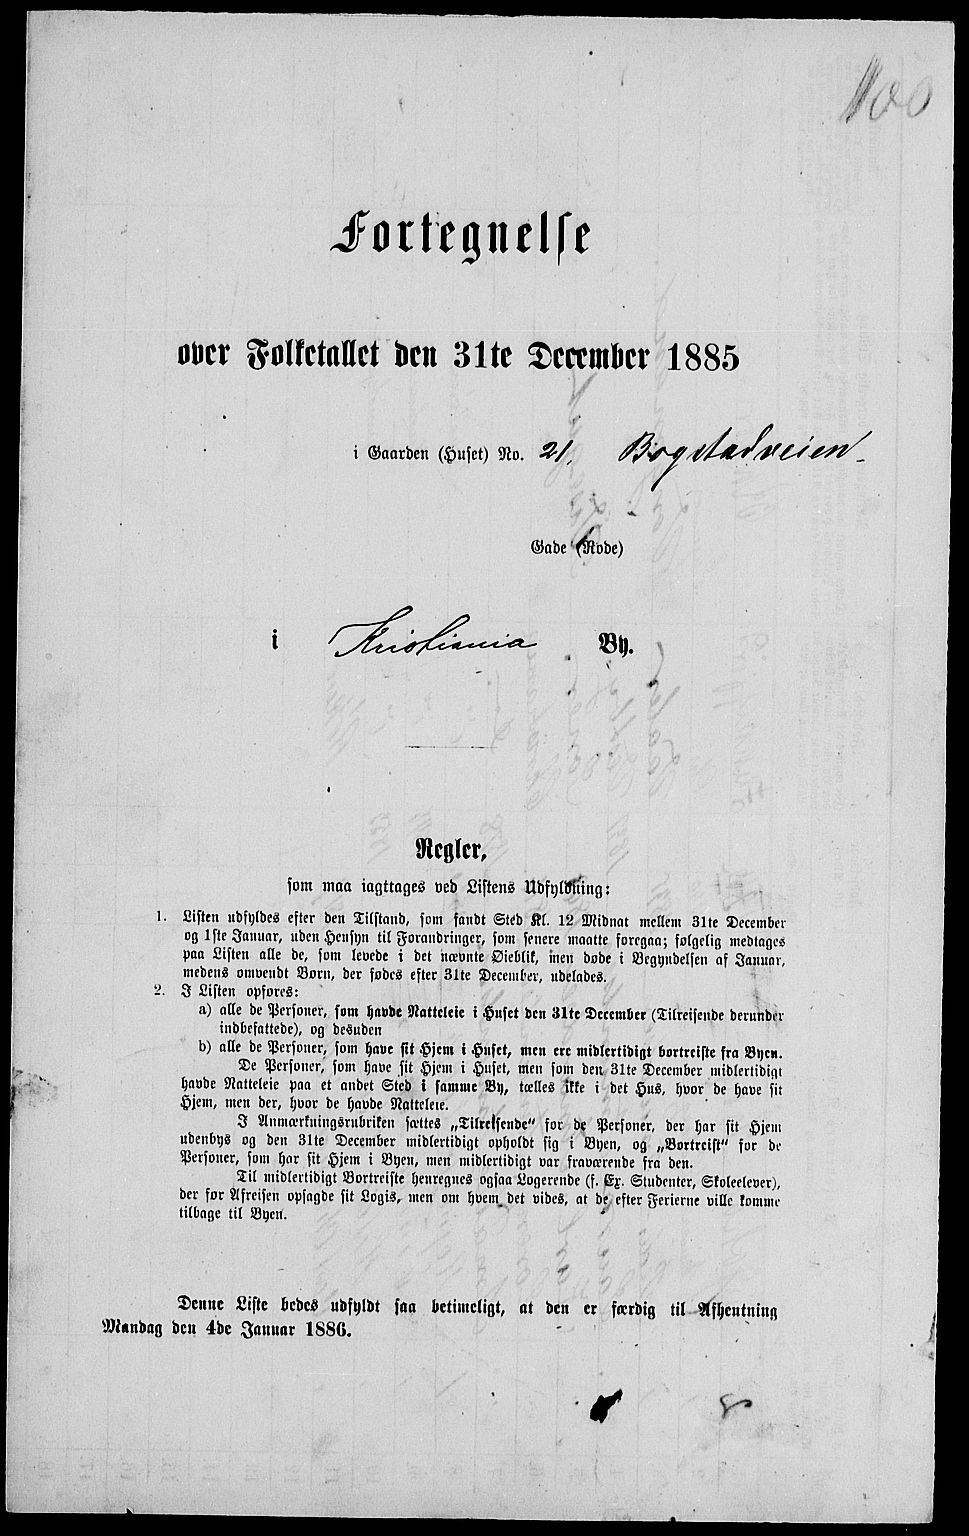 100
Fortegnelse
over Folketallet den 31te December 1885
i Gaarden (Huset) No. 21. Bogstadveien
Gade (Rode)
i Kristiania By.
Regler,
som maa iagttages ved Listens Udfyldning:
1. Listen udfyldes efter den Tilstand, som fandt Sted Kl. 12 Midnat mellem 31te December
og 1ste Januar, uden Hensyn til Forandringer, som senere maatte foregaa; følgelig medtages
paa Listen alle de, som levede i det nævnte Øieblik, men døde i Begyndelsen af Januar,
medens omvendt Børn, der fødes efter 31te December, udelades.
2. I Listen opføres:
a) alle de Personer, som havde Natteleie i Huset den 31te December (Tilreisende derunder
indbefattede), og desuden
b) alle de Personer, som have sit Hjem i Huset, men ere midlertidigt bortreiste fra Byen.
De Personer, som have sit Hjem i Huset, men som den 31te December midlertidigt
havde Natteleie paa et andet Sted i samme By, tælles ikke i det Hus, hvor de have sit
Hjem, men der, hvor de havde Natteleie.
I Anmærkningsrubriken sættes „Tilreisende“ for de Personer, der har sit Hjem
udenbys og den 31te December midlertidigt opholdt sig i Byen, og „Bortreist“ for de
Personer, som har sit Hjem i Byen, men midlertidigt var fraværende fra den.
Til midlertidigt Bortreiste henregnes ogsaa Logerende (f. Ex. Studenter, Skoleelever),
der før Afreisen opsagde sit Logis, men om hvem det vides, at de efter Ferierne ville komme
tilbage til Byen.
Denne Liste bedes udfyldt saa betimeligt, at den er færdig til Afhentning
Mandag den 4de Januar 1886.